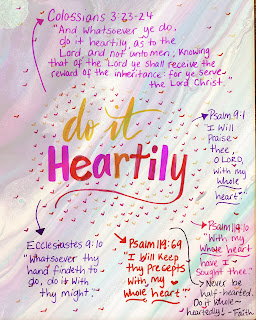 Colossians 3:23-24
"And whatsoever ye do,
do it heartily, as to the
Lord, and not unto men; Knowing
that of the Lord ye shall receive the
reward of the inheritance: for ye serve
the Lord Christ.
do it
Heartily
Psalm 9:1
"I Will
Praise
thee,
O LORD,
with my
whole
heart"
Ecclesiastes 9:10
"Whatsoever thy
hand findeth to
do, do it with
thy might."
Psalm 119:69
"I Will Keep
thy precepts
With my
Whole heart"
Psalm 119:10
"With my
Whole heart
have I
Sought thee"
Never be
half-hearted.
Do it whole-
heartedly! - Faith